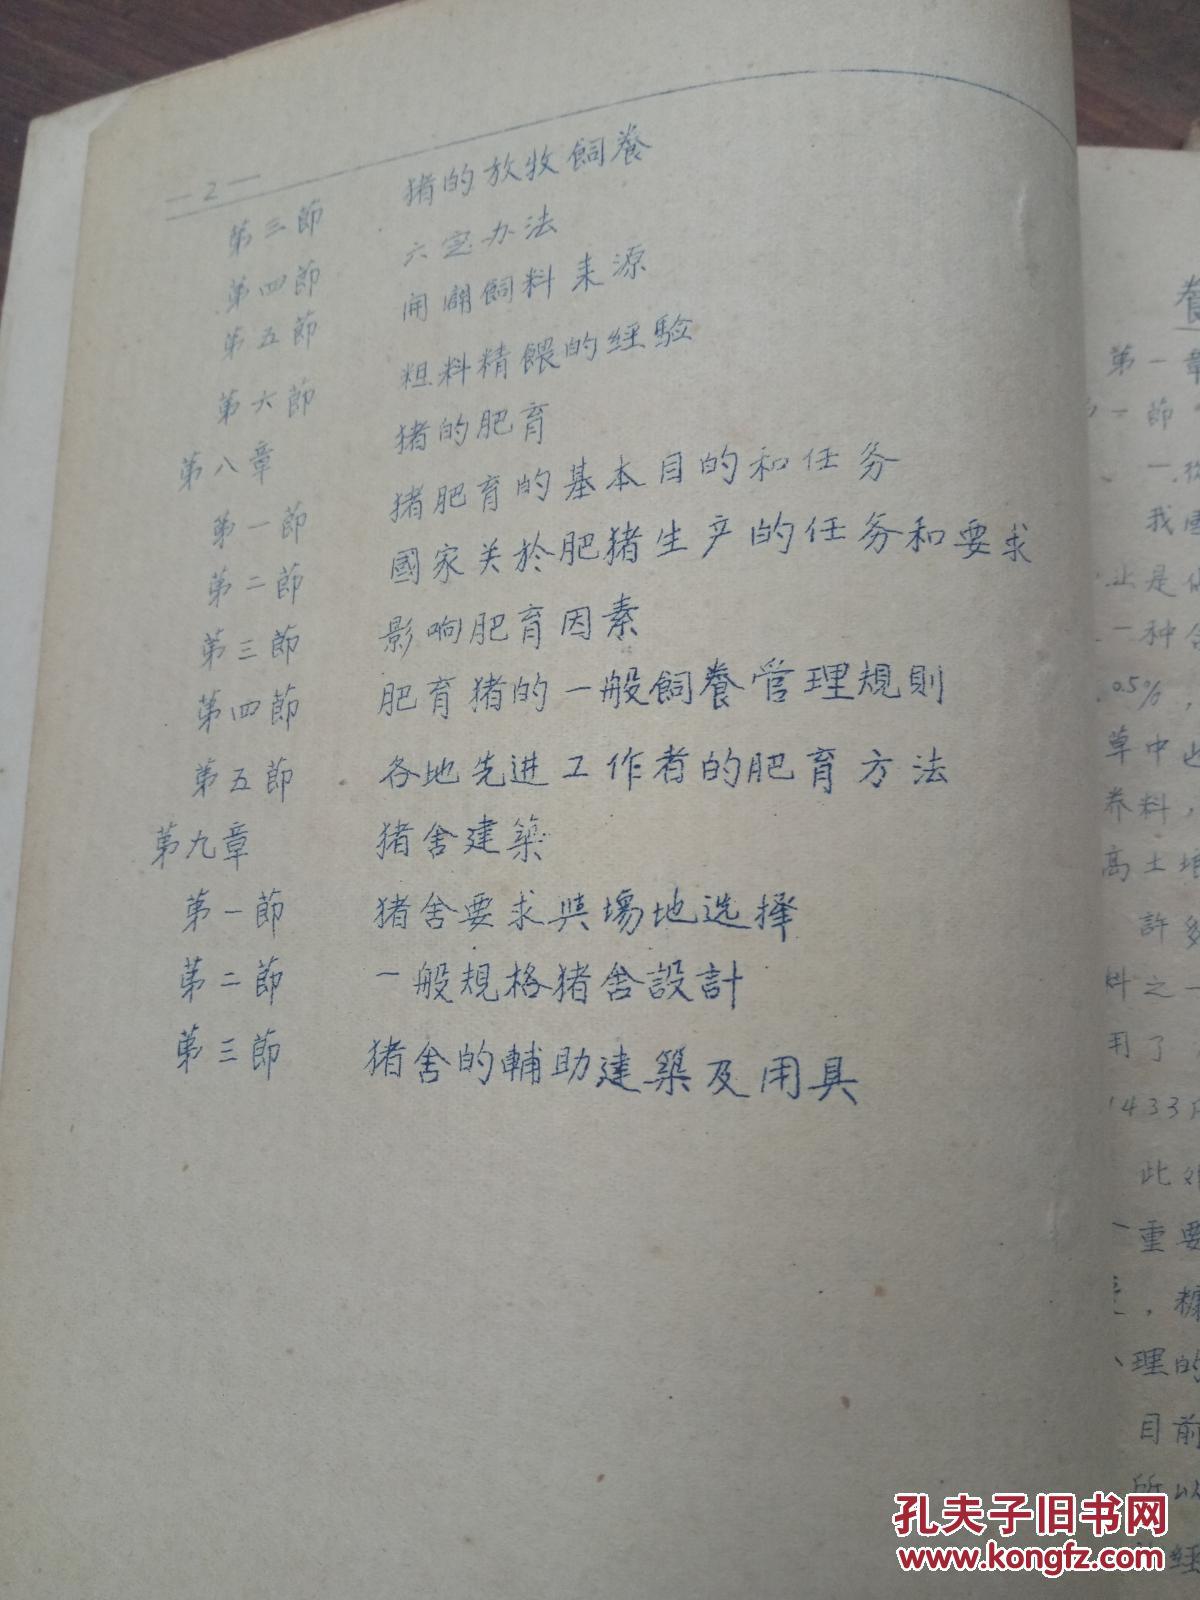 —2—
第三節 猪的放牧飼養
第四節 六定办法
第五節 開闢飼料来源
第六節 粗料精餵的经验
第八章 猪的肥育
第一節 猪肥育的基本目的和任务
第二節 國家关於肥猪生产的任务和要求
第三節 影响肥育因素
第四節 肥育猪的一般飼養管理規則
第五節 各地先进工作者的肥育方法
第九章 猪舍建築
第一節 猪舍要求與場地选择
第二節 一般規格猪舍設計
第三節 猪舍的輔助建築及用具
養
第一章
一節
一.從
我國
止是
一种含
0.5%，
草中也
养料，
高土壤
許多
料之一
用了
1433
此外
重要
，糠
理的
目前
所以
經
孔夫子旧书网
www.kongfz.com